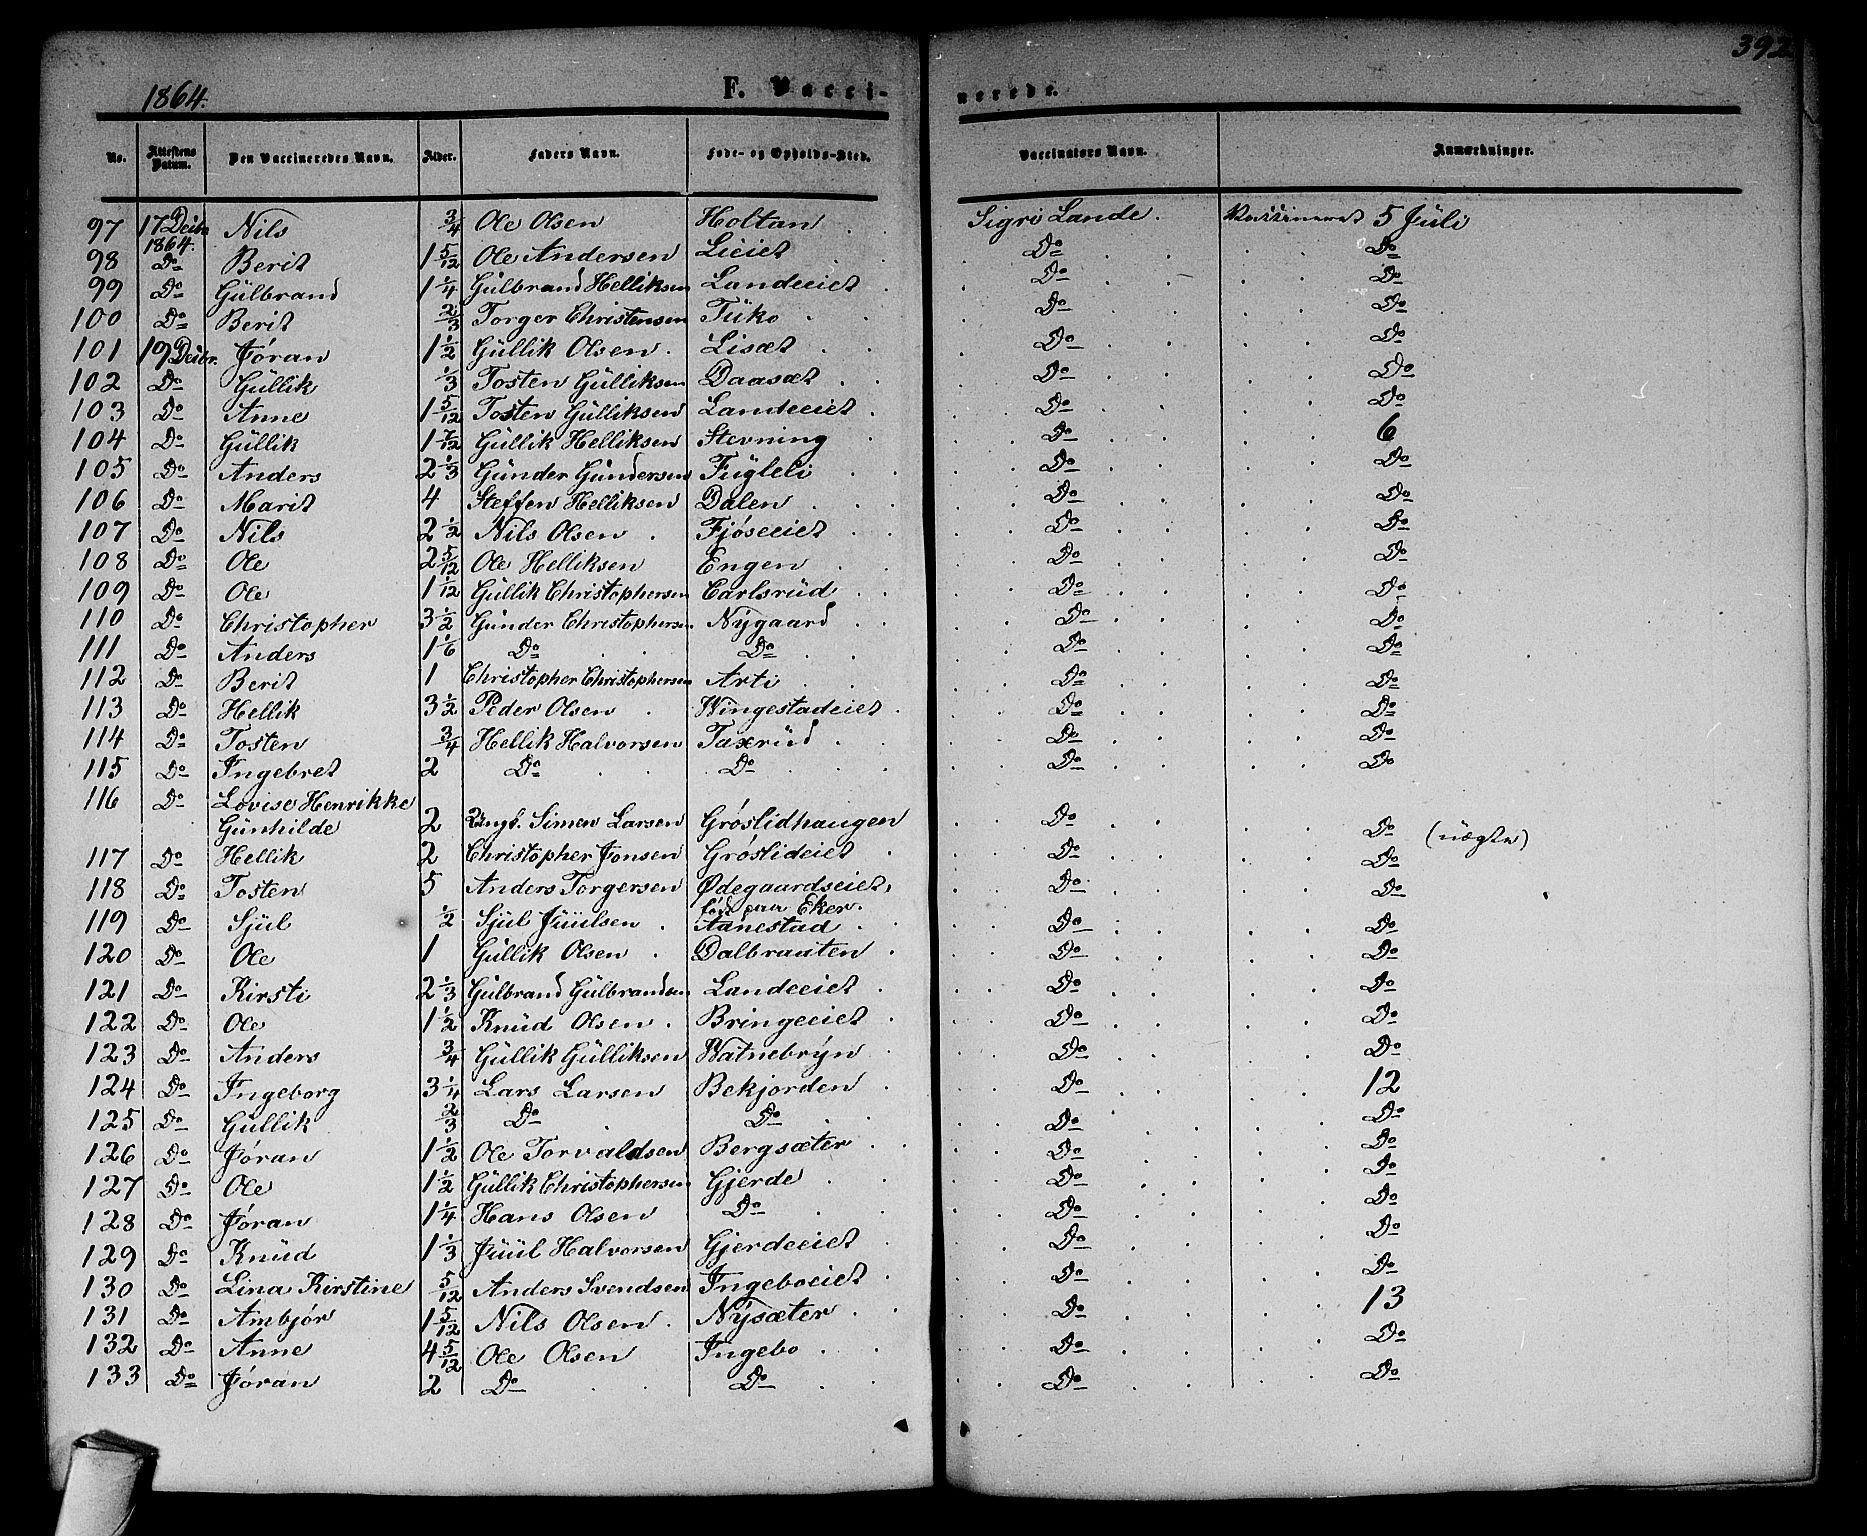 392
1864.
F. Vacci-
nerede.
No. Attestens Datum. Den Vaccineredes Navn. Alder. Faders Navn. Føde- og Opholds-Sted. Vaccinators Navn. Anmærkninger.
97 17 Deibr 1864. Nils 3/4 Ole Olsen Holtan Sigri Lande. Vaccineret 5 Juli
98 Do Berit 1 5/12 Ole Andersen Lieiet Do Do
99 Do Gülbrand 1 1/4 Gülbrand Helliksen Landeeiet Do Do
100 Do Berit 2/3 Torger Christensen Tüko Do Do
101 19 Deibr. Jøran 1 1/2 Güllik Olsen Lisæt Do Do
102 Do Güllik 1/3 Tosten Gülliksen Daasæt Do Do
103 Do Anne 1 5/12 Tosten Gülliksen Landeeiet Do Do
104 Do Güllik 1 7/12 Güllik Helliksen Stevning Do 6
105 Do Anders 2 1/3 Günder Gündersen Fügleli Do Do
106 Do Marit 4 Steffen Helliksen Dalen Do Do
107 Do Nils 2 1/2 Nils Olsen Fjøseeiet Do Do
108 Do Ole 2 5/12 Ole Helliksen Engen Do Do
109 Do Ole 1 1/12 Güllik Christophersen Carlsrüd Do Do
110 Do Christopher 3 1/2 Günder Christophersen Nÿgaard Do Do
111 Do Anders 1 1/6 Do Do Do Do
112 Do Berit 1 Christopher Christophersen Arti Do Do
113 Do Hellik 3 1/2 Peder Olsen Wingestadeiet Do Do
114 Do Tosten 3/4 Hellik Halvorsen Taxerüd Do Do
115 Do Ingebret 2 Do Do Do Do
116 Do Lovise Henrikke
Günhilde 2 Ungk. Simen Larsen Grøslidhaugen Do Do (uægte)
117 Do Hellik 2 Christopher Jonsen Grøslideiet Do Do
118 Do Tosten 5 Anders Torgersen Ødegaardseiet, Do Do
født paa Eker.
119 Do Sjül 1/2 Sjül Jüülsen Aanestad Do Do
120 Do Ole 1 Güllik Olsen Dalbraaten Do Do
121 Do Kirsti 2 1/3 Gülbrand Gülbrandsen Landeeiet Do Do
122 Do Ole 1 1/2 Knüd Olsen Bringeeiet Do Do
123 Do Anders 3/4 Güllik Gülliksen Watnebrÿn Do Do
124 Do Ingeborg 3 1/4 Lars Larsen Bekjorden Do 12
125 Do Güllik 2/3 Do Do Do Do
126 Do Jøran 1 1/2 Ole Torvaldsen Bergsæter Do Do
127 Do Ole 1 1/2 Güllik Christophersen Gjerde Do Do
128 Do Jøran 1 1/4 Hans Olsen Do Do Do
129 Do Knüd 1 1/3 Jüül Halvorsen Gjerdeeiet Do Do
130 Do Lina Kirstine 5/12 Anders Svendsen Ingeboeiet Do Do
131 Do Ambjør 1 5/12 Nils Olsen Nÿsæter Do 13
132 Do Anne 4 5/12 Ole Olsen Ingebo Do Do
133 Do Jøran 2 Do Do Do Do